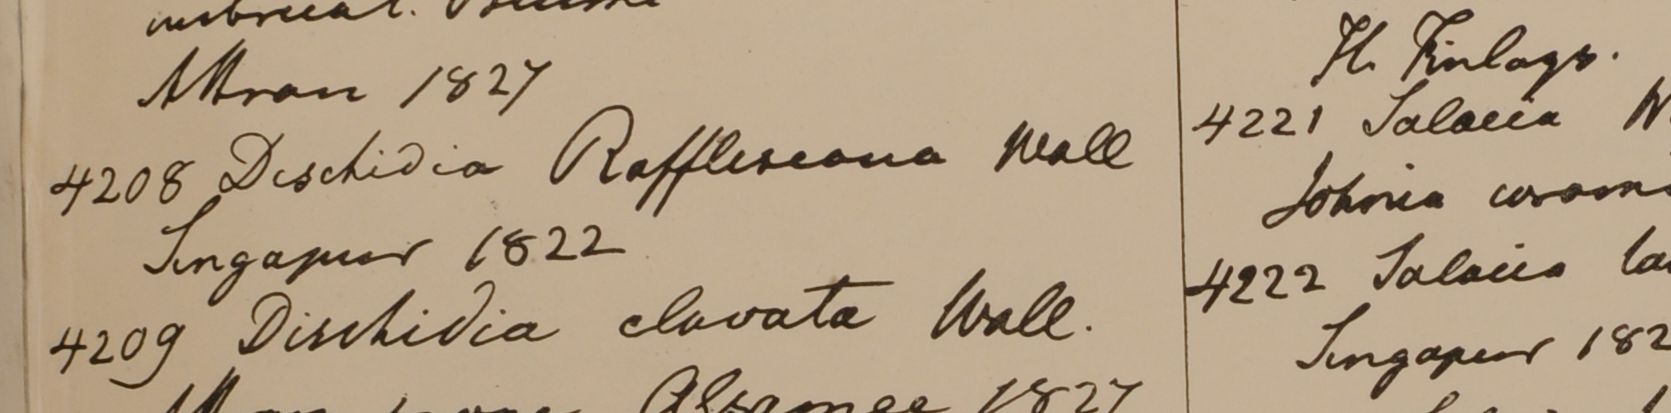 Attran 1827
4208 Dischidia Rafflesiana Wall
Singapur 1822
4209 Dischidia clavata Wall.
1827
H. Finlays.
4221 Salacia W
Johnia corom
4222 Salacia la
Singapur 182